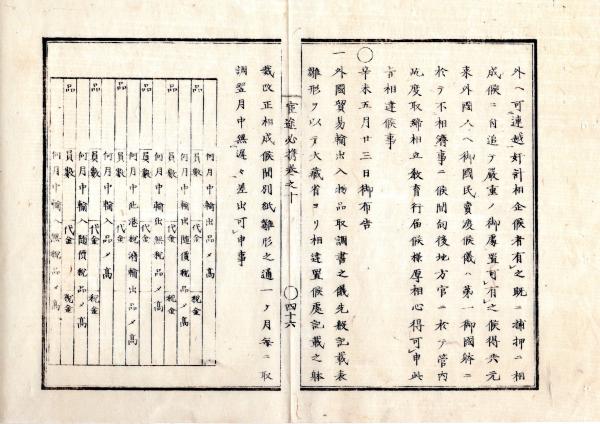 外ヘ可連越奸計相企候者有之既ニ捕押ニ相
成候ニ付追テ嚴重ノ御處置可有之候得共元
來外國人ヘ御國民賣渡候儀ハ第一御國體ニ
於テ不相濟事ニ候間向後地方官ニ於テ管内
屹度取締相立教育行届候樣厚相心得可申此
旨相達候事
○辛未五月廿三日御布告
一外國貿易輸出入物品取調書之儀先般記載表
雛形ヲ以テ大藏省ヨリ相達置候處記載之躰
官途必携卷之十
○四十六
裁改正相成候間別紙雛形之通一ケ月每ニ取
調翌月中無遲々差出可申事
何月中輸出品ノ高
品 員數 代金 稅金
何月中輸出隨價稅品ノ高
品 員數 代金
何月中輸出無稅品ノ高
品 員數 代金
何月中此港稅濟輸出品ノ高
品 員數 代金 稅金
何月中輸入品ノ高
品 員數 代金 稅金
何月中輸入隨價稅品ノ高
品 員數 代金
何月中輸入無稅品ノ高